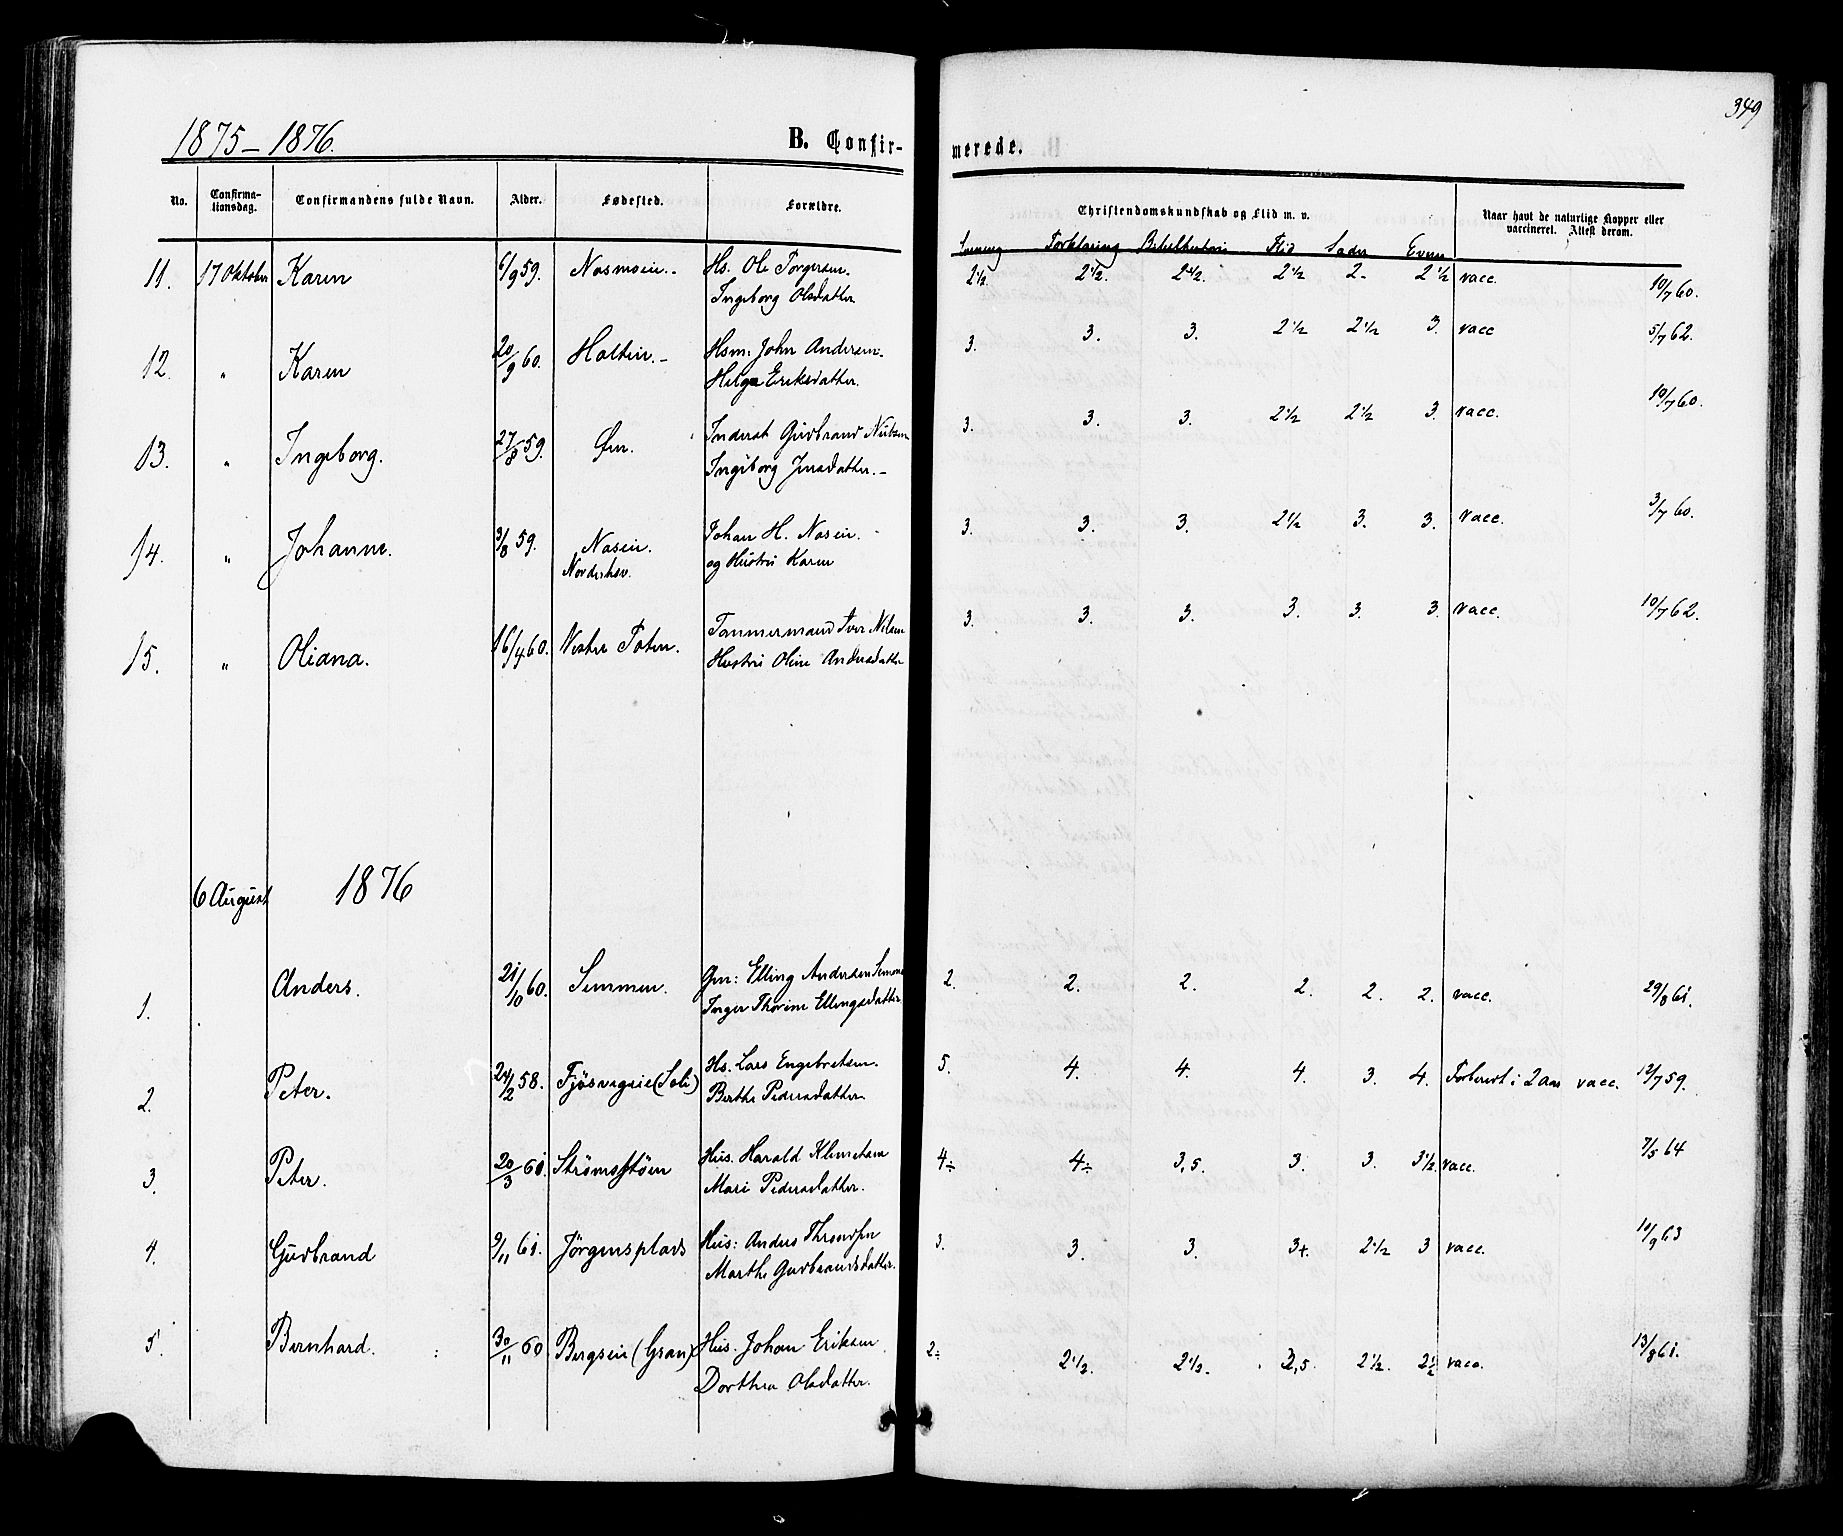 349
1875-1876.
B. Confir-
merede.
No.
Confirma-
tionsdag.
Confirmandens fulde Navn.
Alder.
Fødested.
Forældre.
Christendomskundskab og Flid m. v.
Naar havt de naturlige Kopper eller
vaccineret. Attest derom.
Forklaring Flid Evner
11. 17 Oktober Karen 6/9 59. Nasmoein.- Hs. Ole Torgersen. 2½. 2½. 2½. 2½ 2- 2½ vacc. 10/7 60.
Ingeborg Olsdatter
12. " Karen 20/9 60. Holtein.- Hsm: John Andersen. 3. 3. 3. 2½ 2½ 3. vacc 5/7 62.
Helge Eriksdatter.
13. " Ingeborg. 27/8 59. Øen. Inderst Gudbrand Nilsen 3. 3. 3. 2½ 2½ 3. vacc. 10/7 60.
Ingeborg Jensdatter.-
14. " Johanne. 3/8 59. Nasein. Johan H. Nasein. 3. 3. 3. 2½ 3. 3. vacc. 3/7 60.
Norderhov. og Hustru Karen
15. " Oliana. 16/4 60. Vestre Toten. Tømmermand Iver Nilsen 3. 3. 3. 3. 3. 3. vacc. 10/7 62.
Hustru Oline Andersdatter
6 August 1876
1. Anders. 21/10 60. Semmen. Gm: Elling Andersen Semmen 2. 2. 2. 2. 2. 2. vacc. 29/8 61.
Inger Thorine Ellingsdatter.
2. Peter. 24/2 58. Fjøsvegeie (Sole) Hs. Lars Engebretsen. 5. 4. 4. 4. 3. 4. Forberedt i 2 Aar vacc. 12/7 59.
Berthe Pedersdatter
3. Peter. 20/3 61. Strømsstøen Hus. Harald Klemetsen 4÷ 4÷ 3,5. 3. 3. 3½ vacc. 7/5 64
Mari Pedersdatter.
4. Gudbrand 9/11 61. Jörgensplads Hus: Anders Throndsen 3. 3. 3. 3+. 2½ 3 vacc. 10/9 63
Marthe Gudbrandsdatter.
5. Bernhard. 30/11 60 Bergsein (Gran) Hus. Johan Eriksen 2÷ 2½. 2½. 2,5. 2½. 2½ vacc. 13/8 61.
Dorthea Olsdatter.